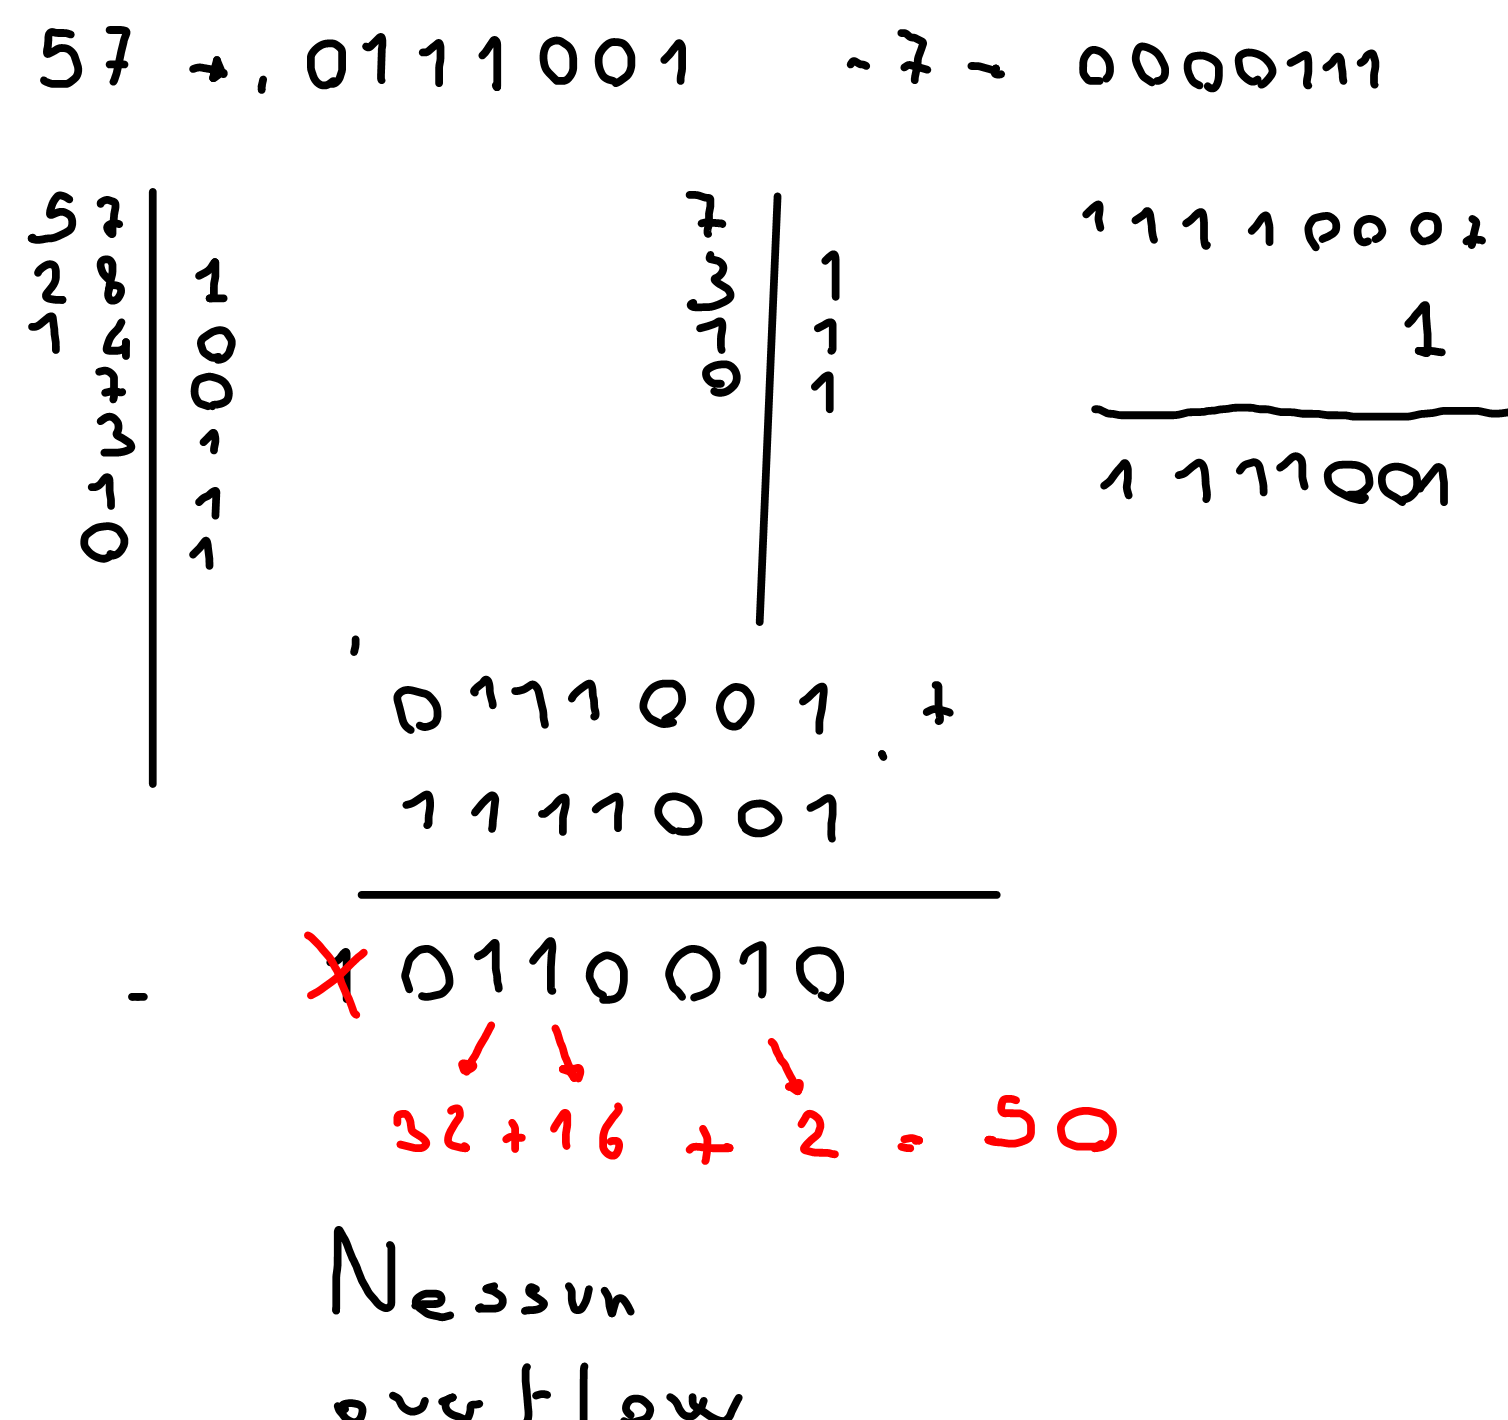 57 → 0111001 -7 - 0000111
57
28 1
14 0
7 0
3 1
1 1
0 1
7
3 1
1 1
0 1
1111000+
1
1111001
0111001 +
1111001
1 0110010
32+16 + 2 = 50
Nessun
overflow